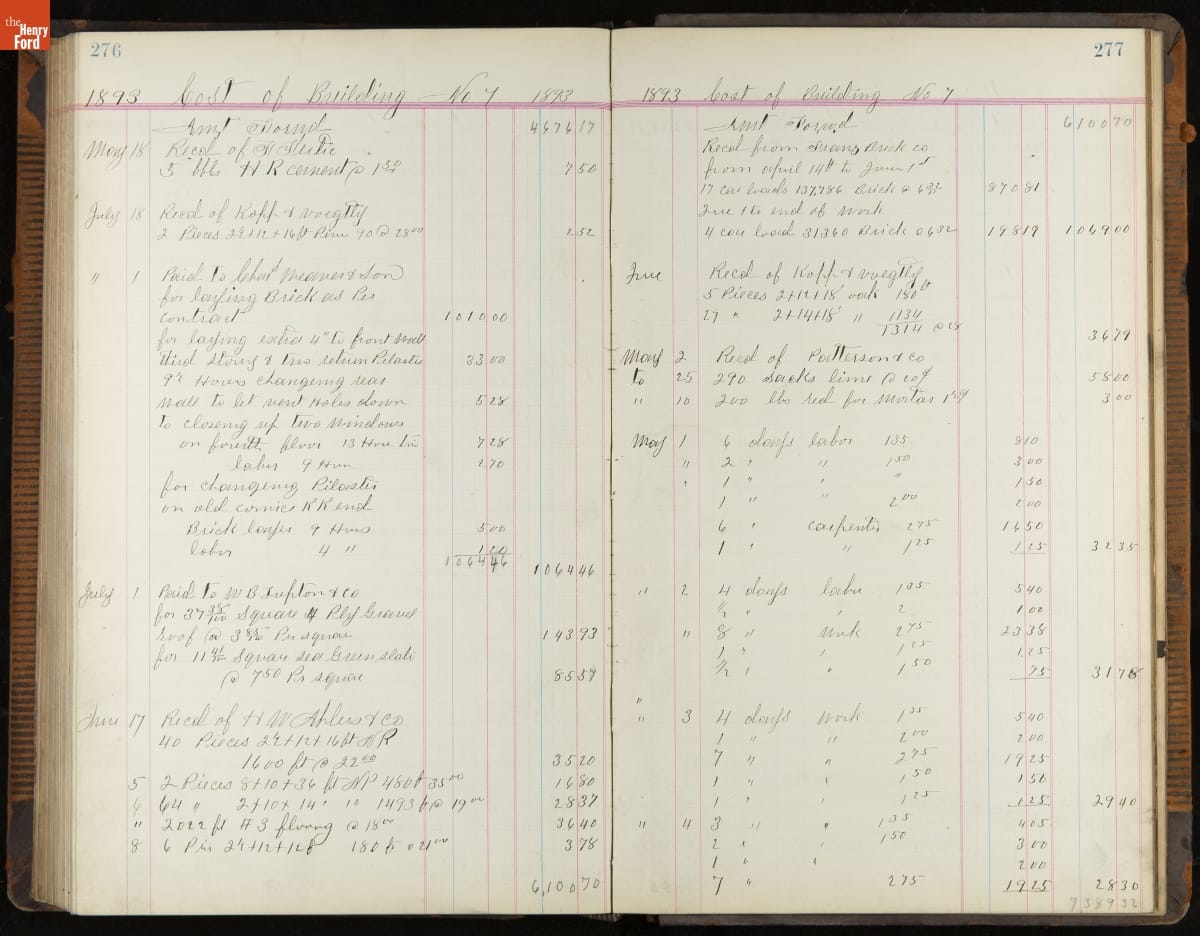 the Henry Ford
276
1893 Cost of Building No 7 1893
Amt Forwd 4676 17
May 18 Recd of
5 bbls H R cement @ 1 50 7 50
July 18 Recd of Kopp & Voegtly
2 Pieces 2½+12+16 ft Pine 90 @ 28 00 2 52
" 1 Paid to Chas Meaner & Son
for laying Brick as Per
contract 1010 00
for laying extra 4" to front Wall
third Story & two return Pilasters 33 00
9½ Hours changeing rear
Wall to let vent Holes down 5 28
to closeing up two Windows
on fourth floor 13 Hour 7 28
labor 9 Hour 2 70
for changeing Pilaster
on old cornice R R end
Brick layer 9 Hours 5 00
labor 4 " 1 20
1064 46 1064 46
July 1 Paid to W B Lupton & co
for 37 38/100 Square 4 Ply Gravel
roof @ 3 85/100 Per square 143 93
for 11 41/100 Square Green slate
@ 7 50 Pr square 85 59
June 17 Recd of H W Ahlers & co
40 Pieces 2½+12+16 ft N P
1600 ft @ 22 00 35 20
5 2 Pieces 8+10+36 ft N P 480 ft 35 00 16 80
6 64 " 2+10+14 " " 1493 ft @ 19 00 28 37
" 2022 ft #3 floorg @ 18 00 36 40
8 6 Pcs 2½+12+12 ft 180 ft @ 21 00 3 78
6,100 70
277
1893 Cost of Building No 7
Amt Forwd 6100 70
Recd from Brick co
from april 14th to June 1st
17 car loads 137,786 Brick @ 6 32 870 81
June 1 to end of Work
4 car load 31360 Brick @ 6 32 198 19 1069 00
June Recd of Kopp & Voegtly
5 Pieces 2+12+18 oak 180 ft
27 " 2+14+18 " 1134
1314 @ 28 36 79
May 2 Recd of Patterson & co
to 25 290 Sacks lime @ 20¢ 58 00
" 10 200 lbs red for Mortar 3 00
May 1 6 days labor 1 35 8 10
" 2 " " 1 50 3 00
" 1 " " " 1 50
1 " " 2 00 2 00
6 " carpenter 2 75 16 50
1 " " 1 25 1 25 32 35
" 2 4 days labor 1 35 5 40
½ " " 2 1 00
" 8 " Work 2 75 23 38
1 " " 1 25 1 25
½ " " 1 50 75 31 78
"
" 3 4 days Work 1 35 5 40
1 " " 2 00 2 00
7 " " 2 75 19 25
1 " " 1 50 1 50
1 " " 1 25 1 25 29 40
" 4 3 " " 1 35 4 05
2 " " 1 50 3 00
1 " " 2 00
7 " 2 75 19 25 28 30
7389 32